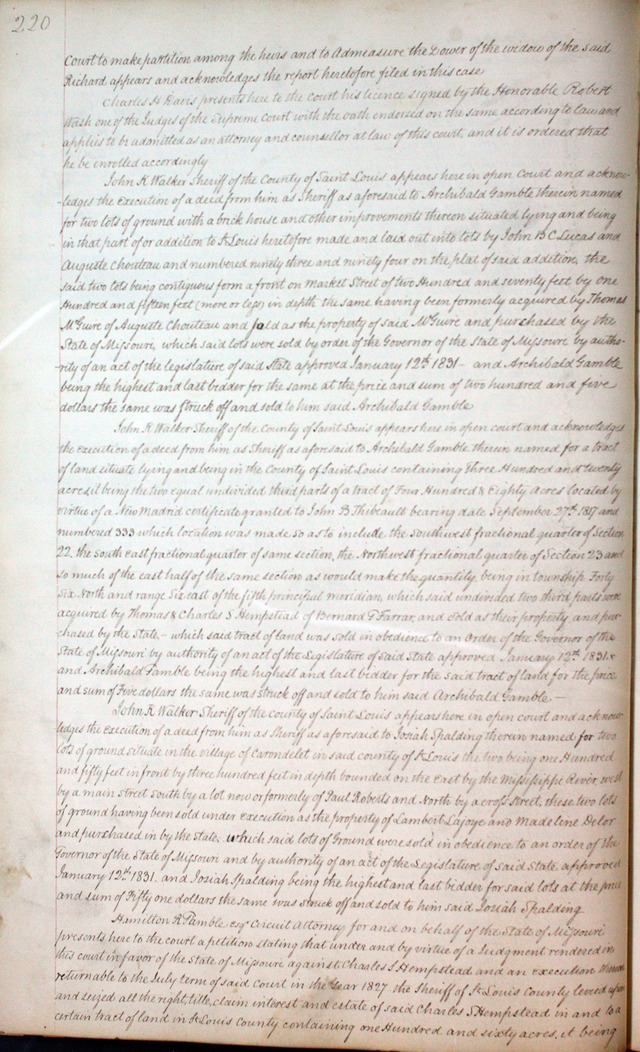 220
Court to make partition among the heirs and to Admeasure the Dower of the widow of the said
Richard appears and acknowledges the report heretofore filed in this case
Charles H Davis presents here to the Court his licence signed by the Honorable Robert
Wash one of the Judges of the Supreme Court with the oath endorsed on the same according to law and
applies to be admitted as an attorney and counsellor at law of this court, and it is ordered that
he be enrolled accordingly
John K Walker Sheriff of the County of Saint Louis appears here in open Court and acknow-
-ledges the execution of a deed from him as Sheriff as aforesaid to Archibald Gamble therein named
for two lots of ground with a brick house and other improvements thereon situated lying and being
in that part of or addition to St Louis heretofore made and laid out into lots by John B C Lucas and
Auguste Chouteau and numbered ninety three and ninety four on the plat of said addition, the
said two lots being contiguous form a front on Market Street of two Hundred and seventy feet by one
Hundred and fifteen feet (more or less) in depth the same having been formerly acquired by Thomas
McGuire of Auguste Chouteau and sold as the property of said McGuire and purchased by the
State of Missouri, which said lots were sold by order of the Governor of the State of Missouri by autho-
-rity of an act of the legislature of said State approved January 12th 1831 - and Archibald Gamble
being the highest and last bidder for the same at the price and sum of two hundred and five
dollars the same was struck off and sold to him said Archibald Gamble
John K Walker Sheriff of the County of Saint Louis appears here in open court and acknowledges
the execution of a deed from him as Sheriff as aforesaid to Archibald Gamble therein named for a tract
of land situate lying and being in the County of Saint Louis containing three Hundred and twenty
acres, it being the two equal undivided third parts of a tract of Four Hundred & Eighty Acres located by
virtue of a New Madrid certificate granted to John B Thibeault bearing date September 27th 1817 and
numbered 333 which location was made so as to include the Southwest fractional quarter of Section
22, the south east fractional quarter of same section, the Northwest fractional quarter of Section 23 and
so much of the east half of the same section as would make the quantity, being in township Forty
Six North and range Six east of the fifth principal meridian, which said undivided two third parts were
acquired by Thomas & Charles S Hempstead of Bernard G Farrar, and sold as their property, and pur
chased by the State - which said tract of land was sold in obedience to an Order of the Governor of the
State of Missouri by authority of an act of the Legislature of said State approved January 12th 1831 &
and Archibald Gamble being the highest and last bidder for the said tract of land for the price
and sum of Five dollars the same was struck off and sold to him said Archibald Gamble -
John K Walker Sheriff of the County of Saint Louis appears here in open court and acknow
ledges the execution of a deed from him as Sheriff as aforesaid to Josiah Spalding therein named for two
lots of ground situate in the village of Carondelet in said county of St Louis the two being one Hundred
and fifty feet in front by three hundred feet in depth bounded on the East by the Mississippi River, west
by a main street south by a lot now or formerly of Paul Roberts and North by a cross street, these two lots
of ground having been sold under execution as the property of Lambert Lajoye and Madelene Delor
and purchased in by the State, which said lots of Ground were sold in obedience to an order of the
Governor of the State of Missouri and by authority of an act of the Legislature of said State approved
January 12th 1831. and Josiah Spalding being the highest and last bidder for said lots at the price
and sum of Fifty one dollars the same was struck off and sold to him said Josiah Spalding
Hamilton R Gamble esqr Circuit Attorney for and on behalf of the State of Missouri
presents here to the court a petition stating that under and by virtue of a Judgment rendered in
this court in favor of the State of Missouri against Charles S Hempstead and an execution thereon
returnable to the July term of said Court in the Year 1827 the Sheriff of St Louis County levied upon
and seized all the right, title, claim interest and estate of said Charles S Hempstead in and to a
certain tract of land in St Louis County containing one Hundred and sixty acres, it being